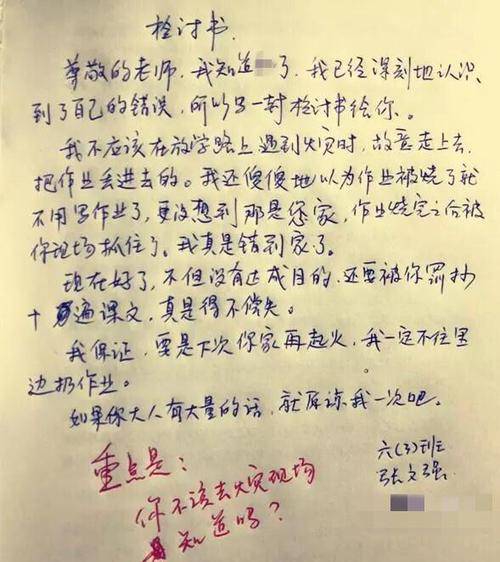 检讨书.
尊敬的老师,我知道了,我已经深刻地认识
到了自己的错误,所以写一封检讨书给你。
我不应该在放学路上遇到火灾时,故意走上去
把作业丢进去的。我还傻傻地以为作业被烧了就
不用写作业了,更没想到那是您家,作业烧完之后被
你现场抓住了。我真是错到家了。
现在好了,不但没有达成目的,还要被你罚抄
十遍课文,真是得不偿失。
我保证,要是下次你家再起火,我一定不往里
边扔作业。
如果你大人有大量的话,就原谅我一次吧。
六(3)班
张文强
重点是:
你不该去火灾现场
知道吗?